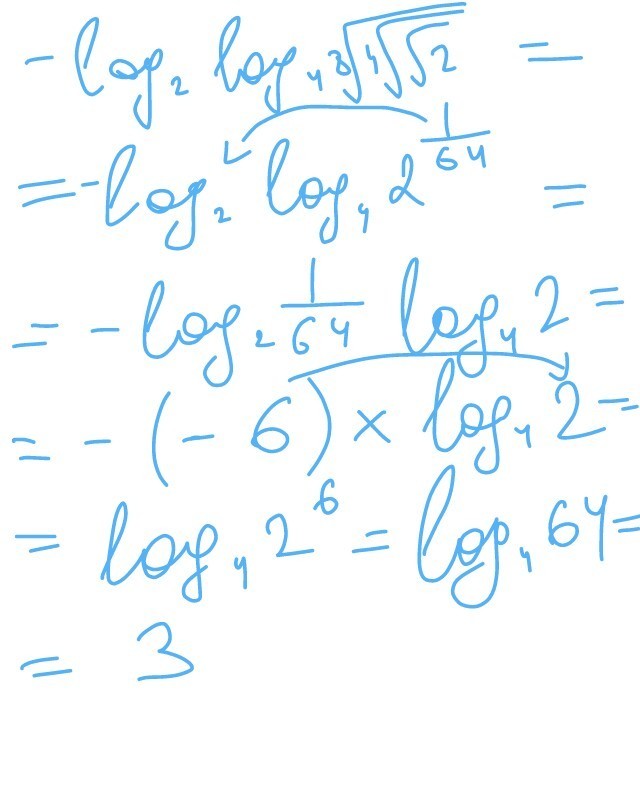 - log₂ log₄ ⁸√⁴√√2 =
= - log₂ log₄ 2^(1/64) =
= - log₂ 1/64 log₄ 2 =
= - (- 6) × log₄ 2 =
= log₄ 2⁶ = log₄ 64 =
= 3